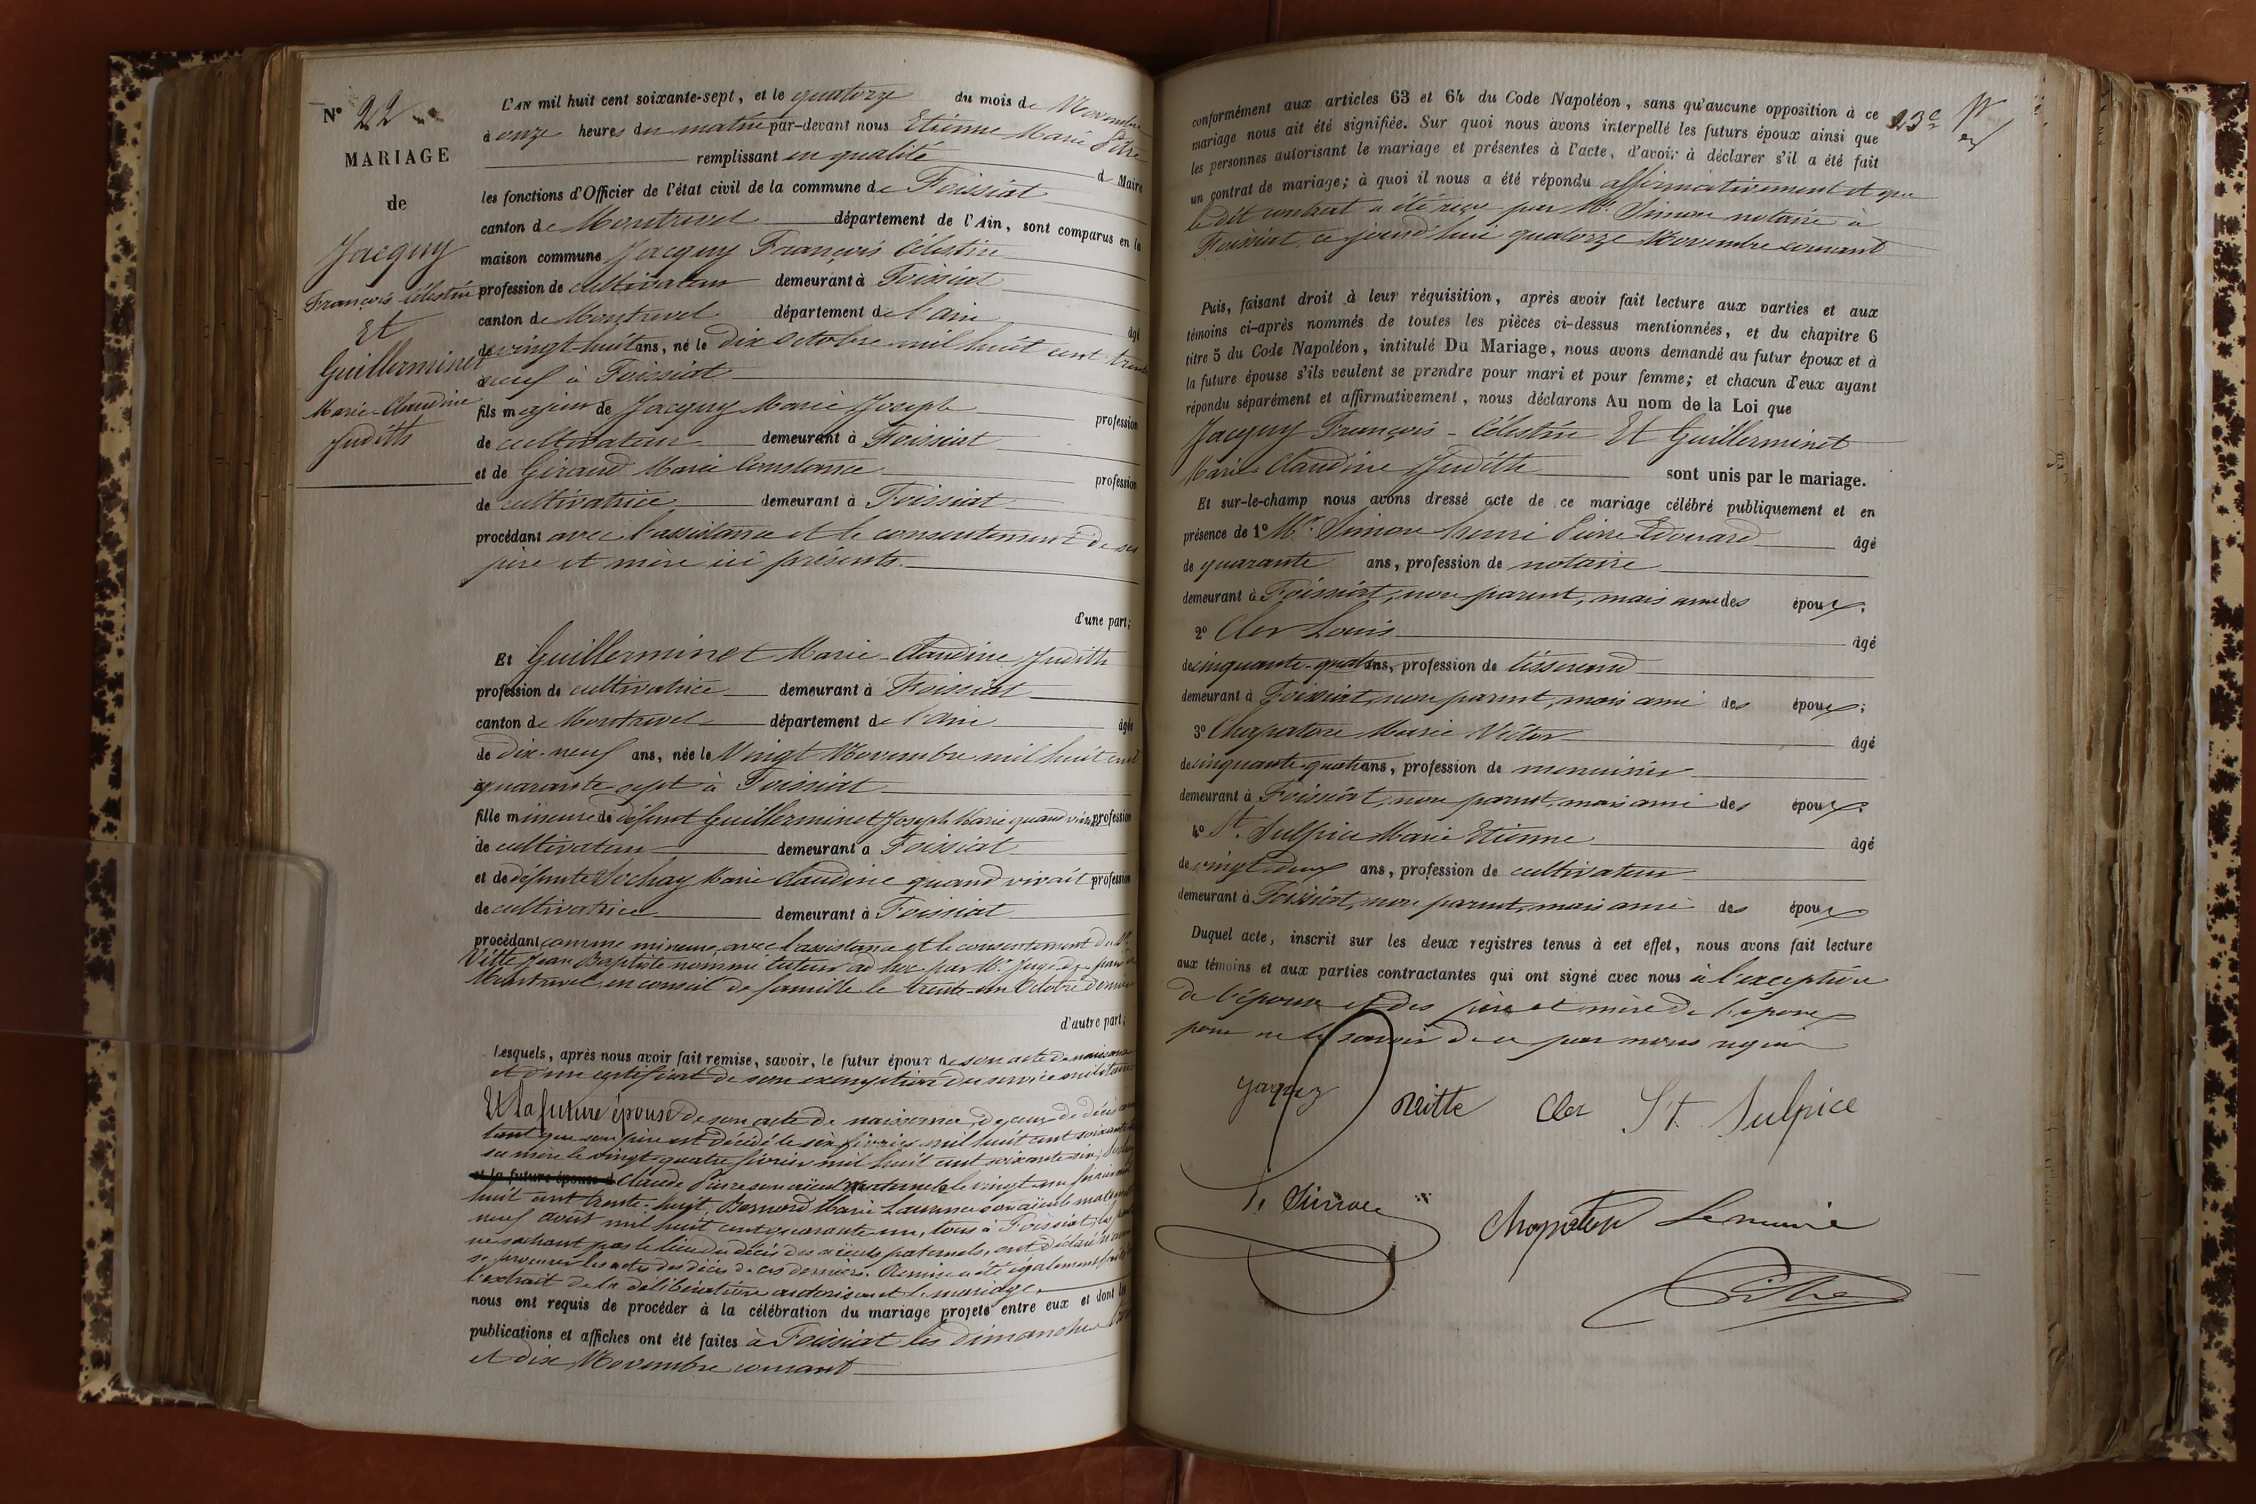 N° 22
MARIAGE
de
Jacquy
François-Célestin
Et
Guillerminet
Marie-Claudine
Judith
L'AN mil huit cent soixante-sept, et le quatorze du mois de Novembre
à onze heures du matin par-devant nous Etienne Marie Pitre
remplissant en qualité d Maire
les fonctions d'Officier de l'état civil de la commune de Foissiat
canton de Montrevel département de l'Ain, sont comparus en la
maison commune Jacquy François Célestin
profession de cultivateur demeurant à Foissiat
canton de Montrevel département de l'ain âgé
de vingt huit ans, né le dix octobre mil huit cent trente
neuf à Foissiat
fils majeur de Jacquy Marie Joseph profession
de cultivateur demeurant à Foissiat
et de Giraud Marie Constance profession
de cultivatrice demeurant à Foissiat
procédant avec l'assistance et le consentement de ses
père et mère ici présents.
d'une part;
Et Guillerminet Marie-Claudine Judith
profession de cultivatrice demeurant à Foissiat
canton de Montrevel département de l'ain âgée
de dix-neuf ans, née le Vingt Novembre mil huit cent
quarante sept à Foissiat
fille mineure de défunt Guillerminet Joseph Marie quand vivait profession
de cultivateur demeurant à Foissiat
et de défunte Sochay Marie Claudine quand vivait profession
de cultivatrice demeurant à Foissiat
procédant comme mineure avec l'assistance et le consentement de
Vitte Jean Baptiste nommé tuteur ad hoc par Mr. Juge de paix de
Montrevel en conseil de famille le trente-un Octobre dernier
d'autre part;
Lesquels, après nous avoir fait remise, savoir, le futur époux de son acte de naissance
et d'un certificat de son exemption du service militaire
Et la future épouse de son acte de naissance, de ceux de décès
tant que son père est décédé le six février mil huit cent soixante
sa mère le vingt-quatre février mil huit cent soixante six,
et la future épouse d Claude Pierre son aïeul maternel le vingt-un
huit cent trente-huit, Bernard Marie Laurence son aïeule maternelle
neuf août mil huit cent quarante un, tous à Foissiat,
ne sachant pas le lieu du décès des aïeuls paternels, ont déclaré
se procurer les actes des décès de ces derniers. Remise a été également
l'extrait de la délibération autorisant le mariage.
nous ont requis de procéder à la célébration du mariage projeté entre eux et dont les
publications et affiches ont été faites à Foissiat les dimanches
et dix Novembre courant
23e
conformément aux articles 63 et 64 du Code Napoléon, sans qu'aucune opposition à ce
mariage nous ait été signifiée. Sur quoi nous avons interpellé les futurs époux ainsi que
les personnes autorisant le mariage et présentes à l'acte, d'avoir à déclarer s'il a été fait
un contrat de mariage; à quoi il nous a été répondu affirmativement et que
le dit contrat a été reçu par Me Simon notaire à
Foissiat, ce jourd'hui quatorze Novembre courant
Puis, faisant droit à leur réquisition, après avoir fait lecture aux parties et aux
témoins ci-après nommés de toutes les pièces ci-dessus mentionnées, et du chapitre 6
titre 5 du Code Napoléon, intitulé Du Mariage, nous avons demandé au futur époux et à
la future épouse s'ils veulent se prendre pour mari et pour femme; et chacun d'eux ayant
répondu séparément et affirmativement, nous déclarons Au nom de la Loi que
Jacquy François-Célestin Et Guillerminet
Marie Claudine Judith sont unis par le mariage.
Et sur-le-champ nous avons dressé acte de ce mariage célébré publiquement et en
présence de 1° Mr. Simon henri Pierre Edouard âgé
de quarante ans, profession de notaire
demeurant à Foissiat, non parent, mais ami des époux;
2° Cler Louis âgé
de cinquante-quatre ans, profession de tisserand
demeurant à Foissiat, non parent, mais ami des époux;
3° Chapaton Marie Victor âgé
de cinquante-quatre ans, profession de menuisier
demeurant à Foissiat, non parent, mais ami des époux;
4° St. Sulpice Marie Etienne âgé
de vingt-deux ans, profession de cultivateur
demeurant à Foissiat, non parent, mais ami des époux
Duquel acte, inscrit sur les deux registres tenus à cet effet, nous avons fait lecture
aux témoins et aux parties contractantes qui ont signé avec nous à l'exception
de l'épouse et des père et mère de l'époux
pour ne le savoir de ce par nous requis
Jaquy Vitte Cler St. Sulpice
Simon Chapaton Le maire
Pitre